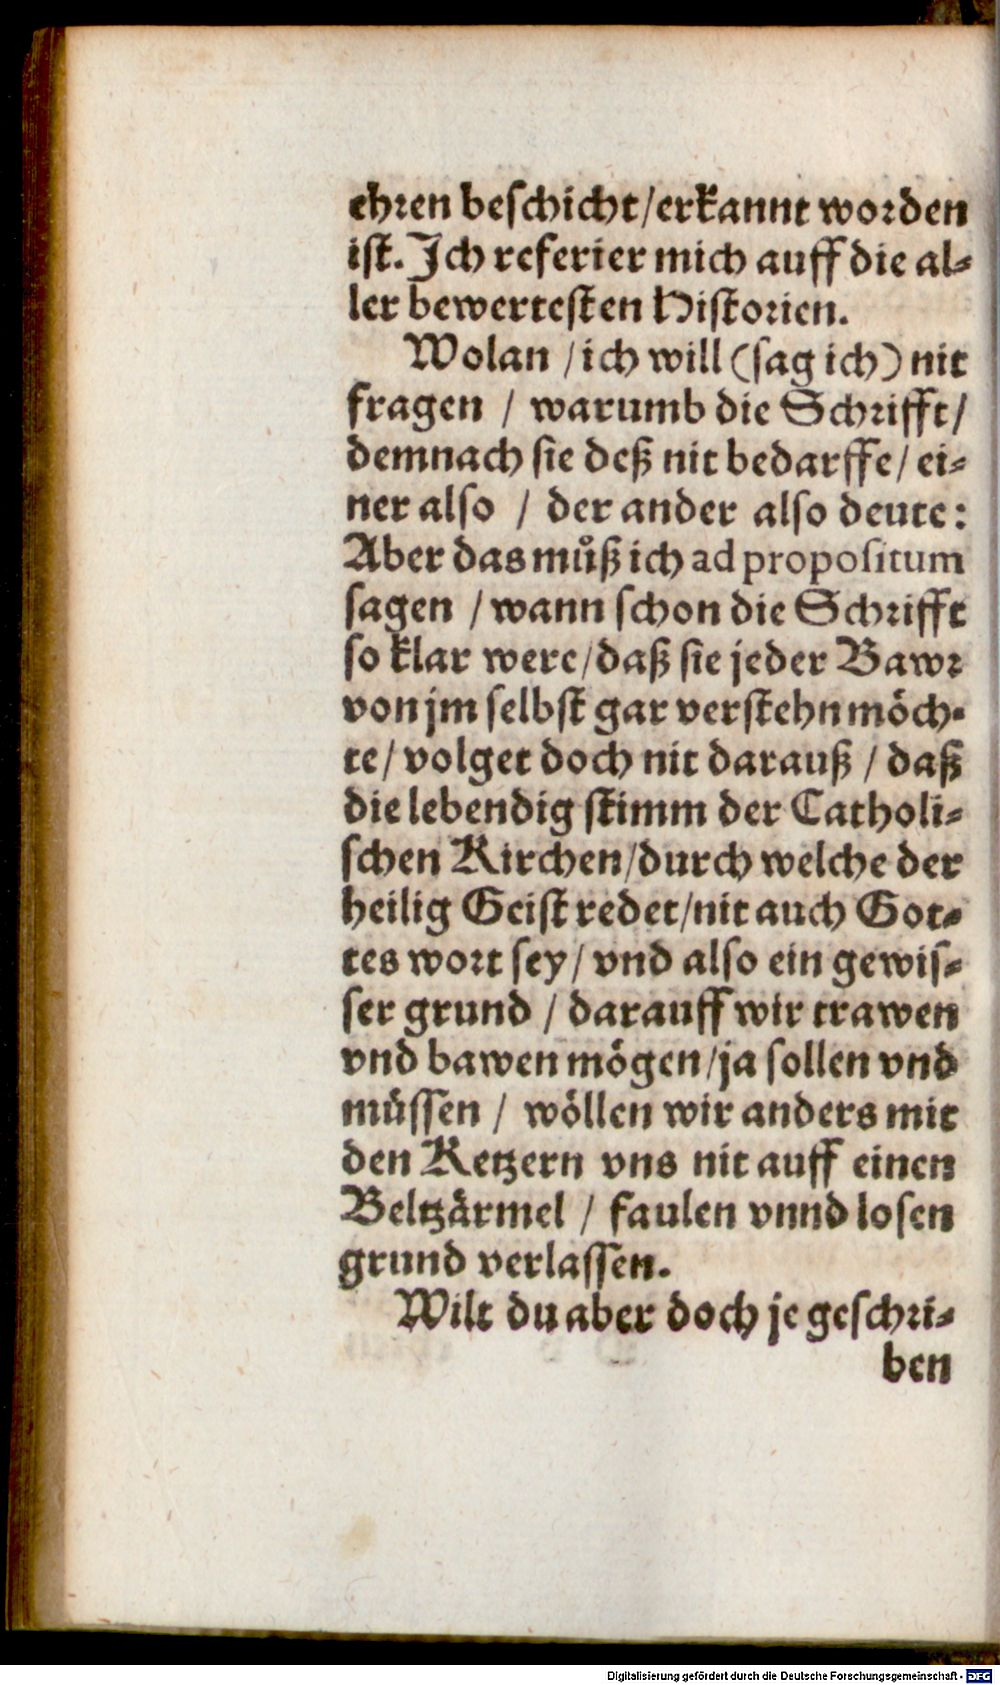 ehren beschicht/erkannt worden
ist. Ich referier mich auff die al-
ler bewertesten Historien.
Wolan /ich will (sag ich) nit
fragen / warumb die Schrifft/
demnach sie deß nit bedarffe/ ei-
ner also / der ander also deute:
Aber das můß ich ad propositum
sagen /wann schon die Schrifft
so klar were/daß sie jeder Bawr
von jm selbst gar verstehn möch-
te/ volget doch nit darauß / daß
die lebendig stimm der Catholi-
schen Kirchen/durch welche der
heilig Geist redet/nit auch Got-
tes wort sey/ vnd also ein gewis-
ser grund / darauff wir trawen
vnd bawen mögen/ja sollen vnd
müssen / wöllen wir anders mit
den Ketzern vns nit auff einen
Beltzärmel / faulen vnnd losen
grund verlassen.
Wilt du aber doch je geschri-
ben
Digitalisierung gefördert durch die Deutsche Forschungsgemeinschaft - DFG